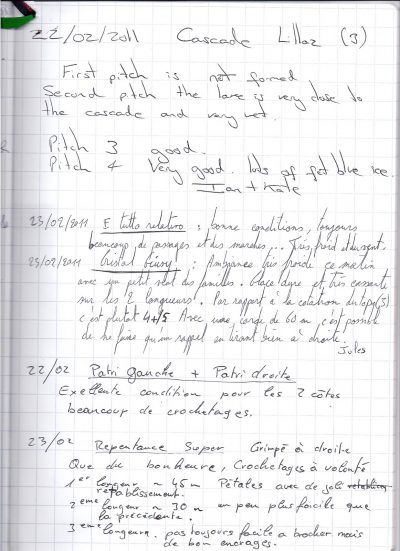 22/02/2011 Cascade Lillaz (3)
First pitch is not formed
Second pitch the lave is very close to
the cascade and very wet.
Pitch 3 good.
Pitch 4 Very good. lots of fat blue ice.
Ian + Kate
23/02/2011 E tutto relativo : bonne conditions, toujours
beaucoup de passages et des marches... Très froid et du vent.
23/02/2011 Cristal : Ambiance très froide ce matin
avec un petit vent des familles. Glace dure et très cassante
sur les 2 longueurs. Par rapport à la cotation du topo (3)
c'est plutôt 4+/5 Avec une corde de 60 m, c'est possible
de ne faire qu'un rappel en tirant bien à droite.
Jules
22/02 Patri gauche + Patri droite
Exellente condition pour les 2 côtes
beaucoup de crochetages.
23/02 Repentance Super Grimpé à droite
Que du bonheure, Crochetages à volonté
1er longeur ~ 45m Pétales avec de joli
retablissement.
2eme longeur ~ 30 m un peu plus facile que
la précédente.
3eme longeure. pas toujours facile a brocher mais
de bon encrages.